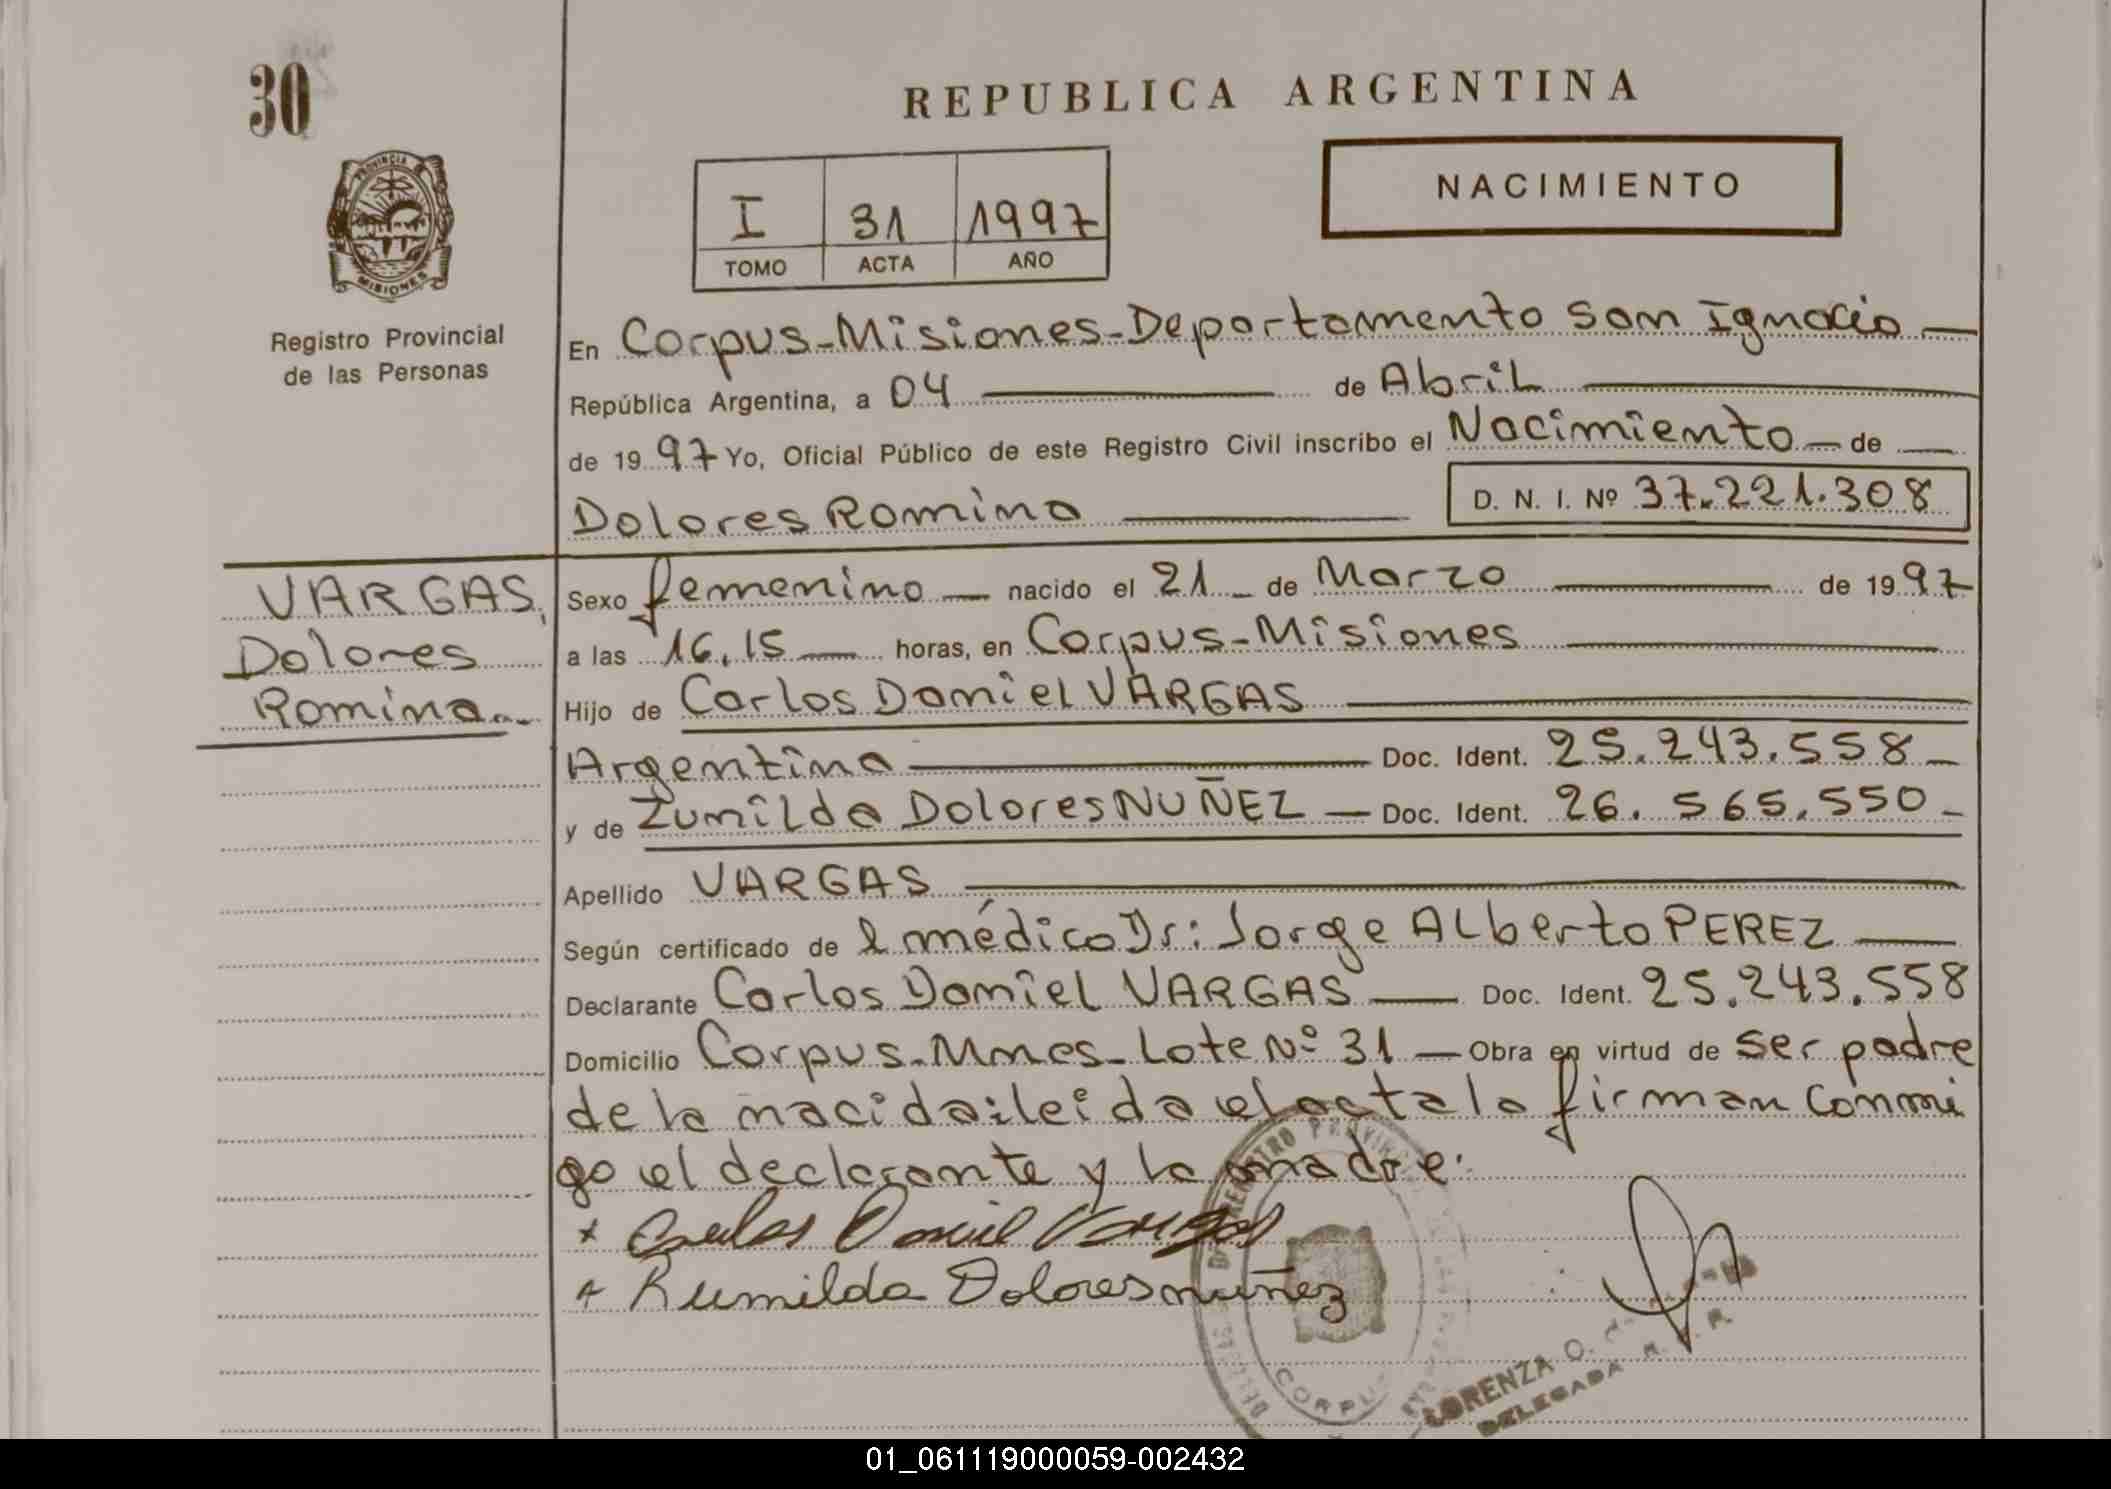 30
REPUBLICA ARGENTINA
NACIMIENTO
I 31 1997
TOMO ACTA AÑO
PROVINCIA
MISIONES
Registro Provincial
de las Personas
En Corpus-Misiones-Departamento San Ignacio
República Argentina, a 04 de Abril
de 1997 Yo, Oficial Público de este Registro Civil inscribo el Nacimiento de
Dolores Romina D. N. I. Nº 37.221.308
VARGAS,
Dolores
Romina
Sexo femenino nacido el 21 de Marzo de 1997
a las 16,15 horas, en Corpus-Misiones
Hijo de Carlos Daniel VARGAS
Argentina Doc. Ident. 25.243.558
y de Zumilda Dolores NUÑEZ Doc. Ident. 26.565.550
Apellido VARGAS
Según certificado de l médico Dr: Jorge Alberto PEREZ
Declarante Carlos Daniel VARGAS Doc. Ident. 25.243.558
Domicilio Corpus-Mnes-Lote Nº 31 Obra en virtud de ser padre
de la nacida: leida el acta la firman conmi
go el declarante y la madre.
x Carlos Daniel Vargas
Rumilda Dolores nuñez
CORPUS
LORENZA O.
DELEGADA
01_061119000059-002432